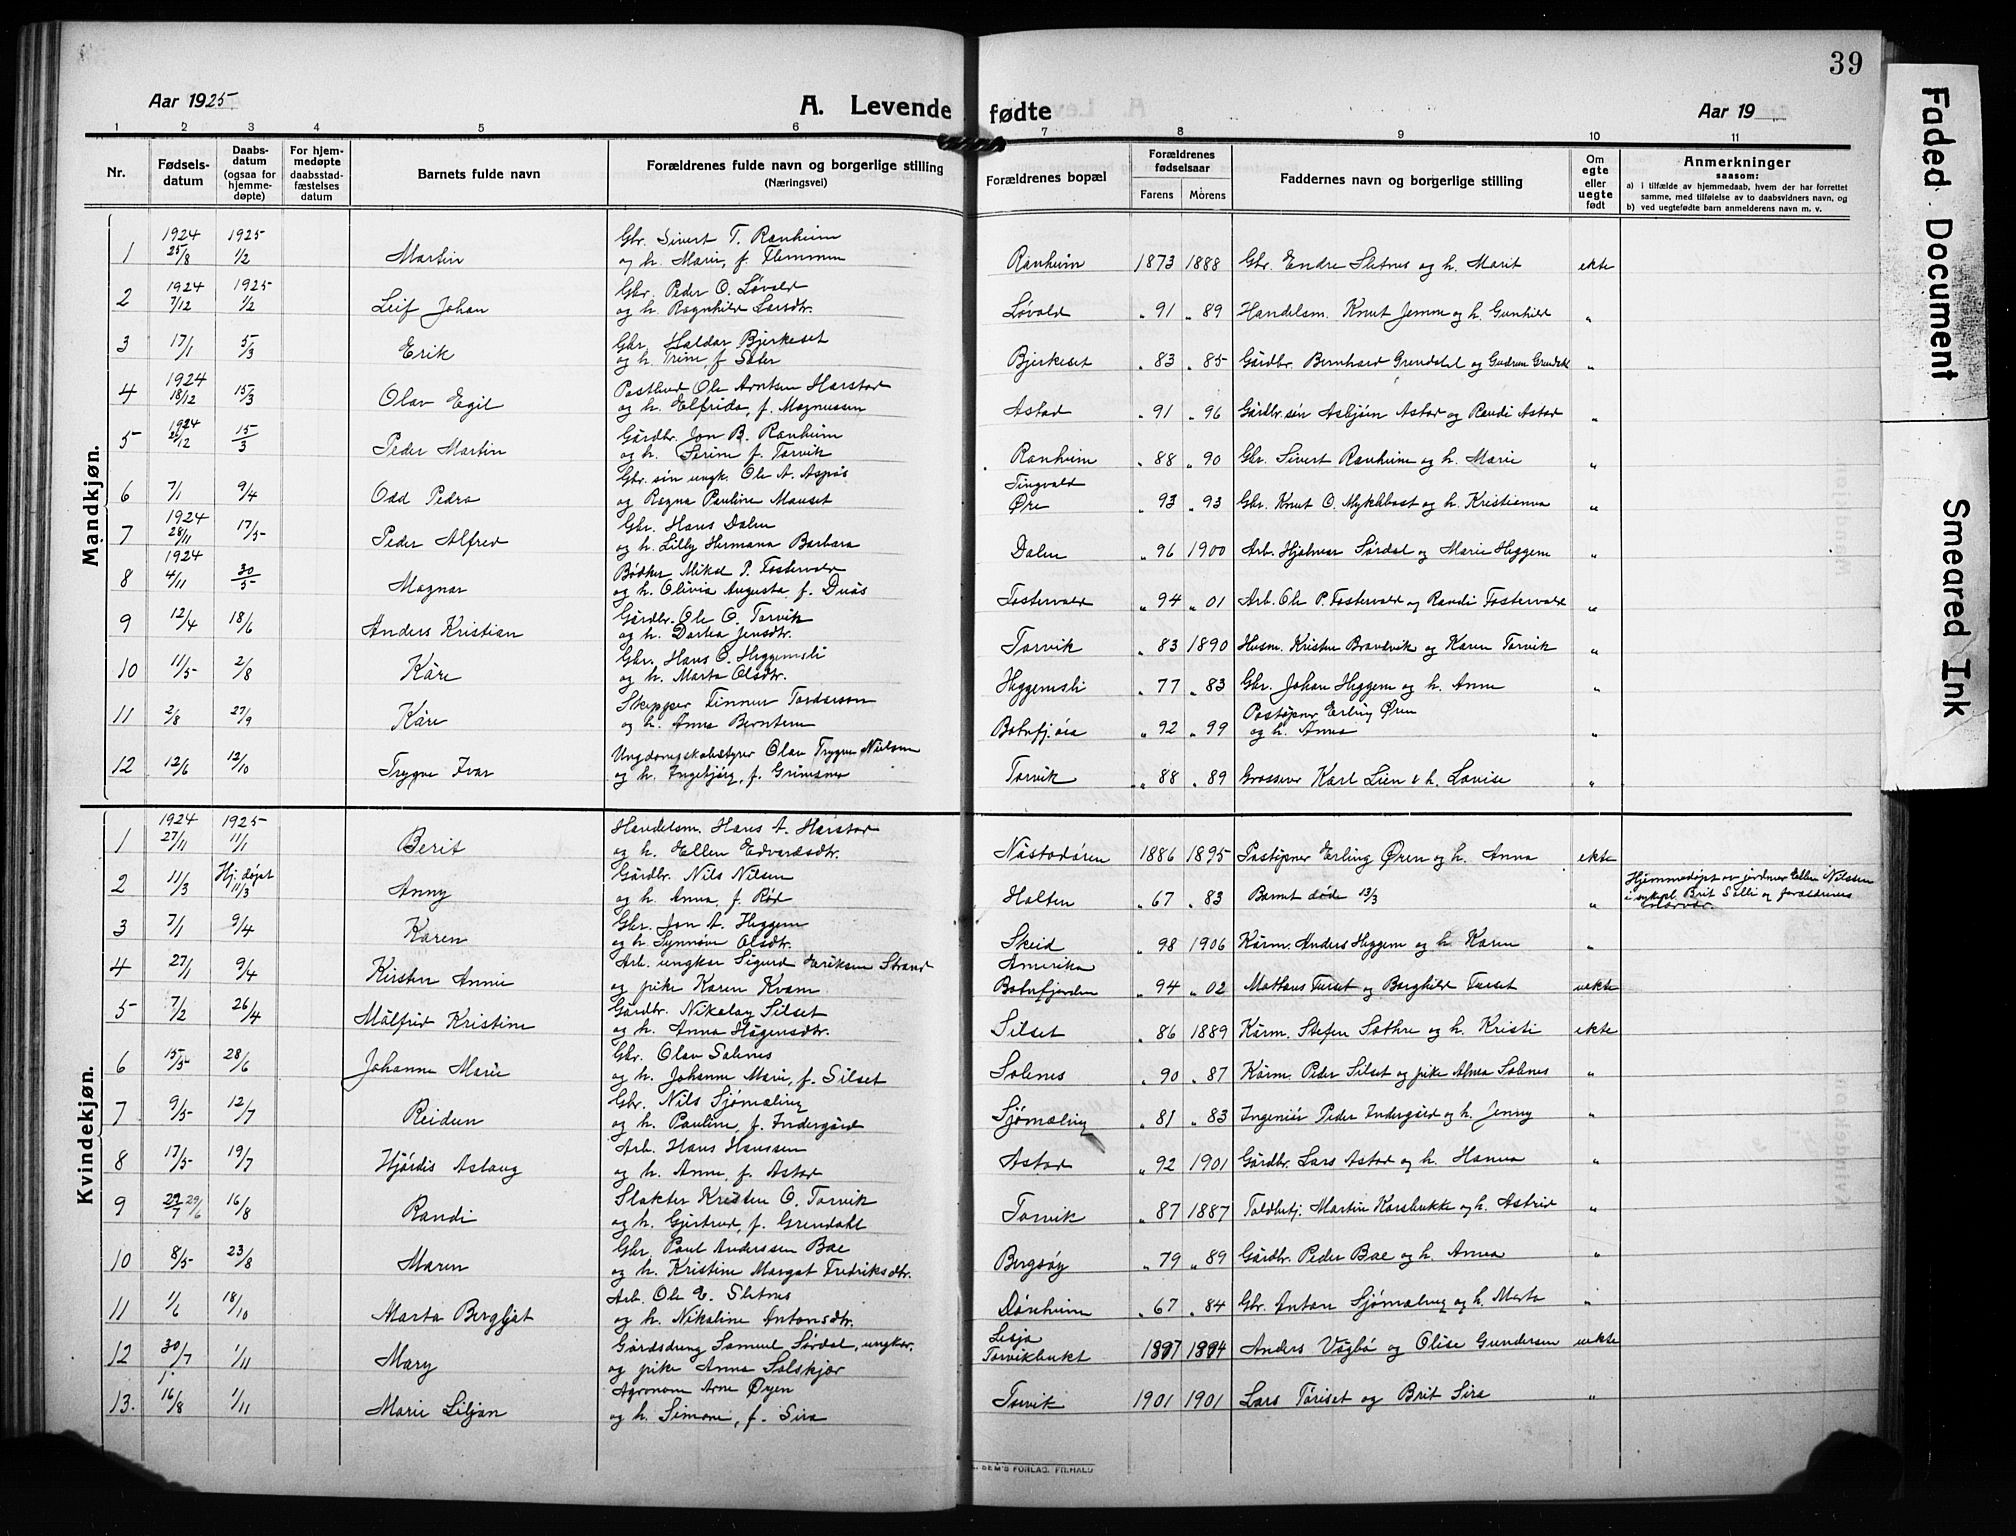 39
Aar 1925
A. Levende fødte
Aar 19
1 2 3 4 5 6 7 8 9 10 11
Nr.
Fødsels-
datum
Daabs-
datum
(ogsaa for
hjemme-
døpte)
For hjem-
medøpte
daabsstad-
fæstelses
datum
Barnets fulde navn
Forældrenes fulde navn og borgerlige stilling
(Næringsvei)
Forældrenes bopæl
Forældrenes
fødselsaar
Farens Mórens
Faddernes navn og borgerlige stilling
Om
egte
eller
uegte
født
Anmerkninger
saasom:
a) i tilfælde av hjemmedaab, hvem der har forrettet
samme, med tilføielse av to daabsvidners navn, og
b) ved uegtefødte barn anmelderens navn m. v.
Mandkjøn.
1 1924 25/8 1925 1/2 Martin Gbr. Sivert T. Ranheim
og h. Marie, f. Flemmen Ranheim 1873 1888 Gbr. Endre Sletnes og h. Marit ekte
2 1924 7/12 1925 1/2 Leif Johan Gbr. Peder O. Løvold
og h. Ragnhild Larsdtr. Løvold " 91 " 89 Handelsm. Knut Jemm og h. Gunhild "
3 17/1 5/3 Erik Gbr. Haldor Bjerkeset
og h. Trine f. Sæter Bjerkeset " 83 " 85 Gårdbr. Bernhard Grendahl og Gudrun Grendahl "
4 1924 18/12 15/3 Olav Egil Postbud Ole Arntsen Harstad
og h. Elfrida, f. Magnussen Astad " 91 " 96 Gårdbr. søn Asbjørn Astad og Randi Astad "
5 1924 15/3 Peder Martin Gårdbr. Jon B. Ranheim
og h. Serine f. Torvik Ranheim " 88 " 90 Gbr. Sivert Ranheim og h. Marie "
6 7/1 9/4 Odd Pedro Gbr. søn ungk. Ole A. Aspås
og Ragna Pauline Mauset Tingvold
Øre " 93 " 93 Gbr. Knut O. Myklebost og h. Kristianna "
7 1924 28/11 17/5 Peder Alfred Gbr. Hans Dalen
og h. Lilly Hermana Barbara Dalen " 96 1900 Arb. Hjalmar Sørdal og Marie Heggem "
8 1924 4/11 30/5 Magnar Bødker Mikal P. Fostervold
og h. Olivia Augusta, f. Duås Fostervold " 94 " 01 Arb. Ole P. Fostervold og Randi Fostervold "
9 12/4 18/6 Anders Kristian Gårdbr. Ole O. Torvik
og h. Dortea Jensdtr. Torvik " 83 1890 Husm. Kristen Brandvik og Karen Torvik "
10 11/5 2/8 Kåre Gbr. Hans O. Heggemsli
og h. Marta Olsdtr. Heggemsli " 77 " 83 Gbr. Johan Heggem og h. Anne "
11 2/8 27/9 Kåre Skipper Finnur Tordarson
og h. Anna Berntsen Botnfj.øra " 92 " 99 Postøpner Erling Øren
og h. Anna "
12 12/6 12/10 Trygve Ivar Ungdomsskolestyrer Olav Trygve Nielsen
og h. Ingebjørg, f. Grimsmo Torvik " 88 " 89 Grosserer Karl Lien & h. Lovise "
Kvindekjøn.
1 1924 27/11 1925 11/1 Berit Handelsm. Hans A. Harstad
og h. Ellen Edvardsdtr. Nåstadøren 1886 1895 Postøpner Erling Øren og h. Anna ekte
2 11/3 Hj. døpt 11/3 Anny Gårdbr. Nils Nilsen
og h. Anna, f. Rød Holten " 67 " 83 Barnet døde 13/3 " Hjemmedøpt av jordmor Ellen Nilssen
Brit Solli og forældrenes
3 7/1 9/4 Karen Gbr. Jon A. Heggem
og h. Synnøve Olsdtr. Skeid " 98 1906 Kårm. Anders Heggem og h. Karen "
4 27/1 9/4 Kirsten Annie Arb. ungkar Sigurd Eriksen Strand
og pike Karen Kvam Amerika
Botnfjorden " 94 " 02 Matheus Furset og Borghild Furset uekte
5 7/2 26/4 Målfrid Kristine Gårdbr. Nikolay Silset
og h. Anna Hågensdtr. Silset " 86 1889 Kårm. Stefen Sæthre og h. Kristi ekte
6 15/5 28/6 Johanne Marie Gbr. Olav Solenes
og h. Johanne Marie, f. Silset Solenes " 90 " 87 Kårm. Peder Silset og pike Alma Solenes "
7 9/5 12/7 Reidun Gbr. Nils Sjømæling
og h. Pauline, f. Indergård Sjømæling " 81 " 83 Ingeniør Peder Indergård og h. Jenny "
8 17/5 19/7 Hjørdis Aslaug Arb. Hans Hanssen
og h. Anne, f. Astad Astad " 92 1901 Gårdbr. Lars Astad og h. Hanna "
9 29/7 29/6 16/8 Randi Slakter Kristen O. Torvik
og h. Gjertrud, f. Grendahl Torvik " 87 1887 Toldbetj. Martin Karsbukke og h. Astrid "
10 8/5 23/8 Maren Gbr. Paul Anderssen Boe
og h. Kristine Margat Fredriksdtr. Bergsøy " 79 " 89 Gårdbr. Peder Boe og h. Anna "
11 1/6 18/10 Marta Bergljot Arb. Ole E. Sletnes
og h. Nikoline Antonsdtr. Dønheim " 67 " 84 Gbr. Anton Sjømæling og h. Marta "
12 30/7 1/11 Mary Gårdsdreng Samuel Sørdal, ungkar.
og pike Anna Solskjær Lesja
Torvikbukt 1897 1894 Anders Vågbø og Olise Gundersen uekte
13. 16/8 1/11 Marie Liljan Agronom Arne Øyen
og h. Simone, f. Sira Torvik 1901 1901 Lars Tøriset og Brit Sira "
SEM'S FORLAG. FR.HALD
Faded Document
Smeared Ink